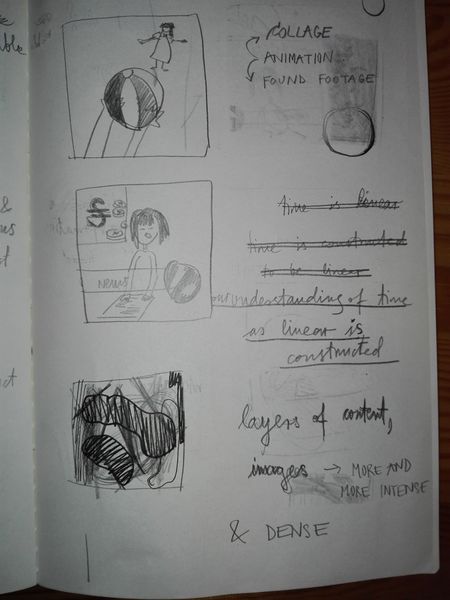 COLLAGE
ANIMATION
FOUND FOOTAGE
time is linear
time is constructed
to be linear
our understanding of time
as linear is
constructed
NEWS
layers of content,
images → MORE AND
MORE INTENSE
& DENSE